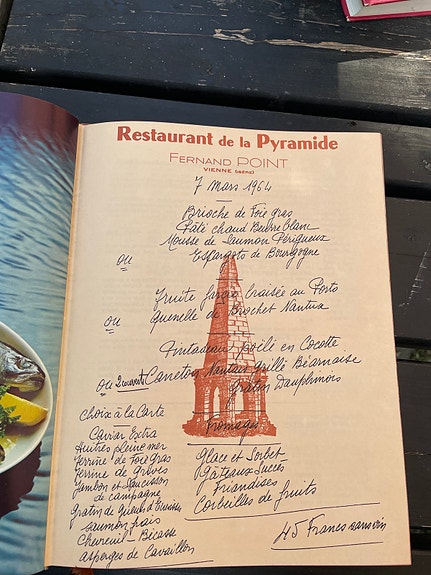 Restaurant de la Pyramide
FERNAND POINT
VIENNE (ISÈRE)
7 Mars 1964
Brioche de Foie gras
Pâté chaud Beurre Blanc
Mousse de Saumon Périgueux
ou Escargots de Bourgogne
Truite farcie braisée au Porto
ou Quenelle de Brochet Nantua
Pintadeau poêlé en Cocotte
ou Caneton Nantais Grillé Béarnaise
Gratin Dauphinois
Fromages
Glace et Sorbet
Gâteaux Succès
Friandises
Corbeilles de fruits
45 Francs sans vin
Choix à la Carte
Caviar Extra
Huîtres pleine mer
Terrine de Foie Gras
Terrine de Grives
Jambon et Saucisson
de campagne
Gratin de queues d'Ecrevisses
Saumon frais
Chevreuil - Bécasse
Asperges de Cavaillon